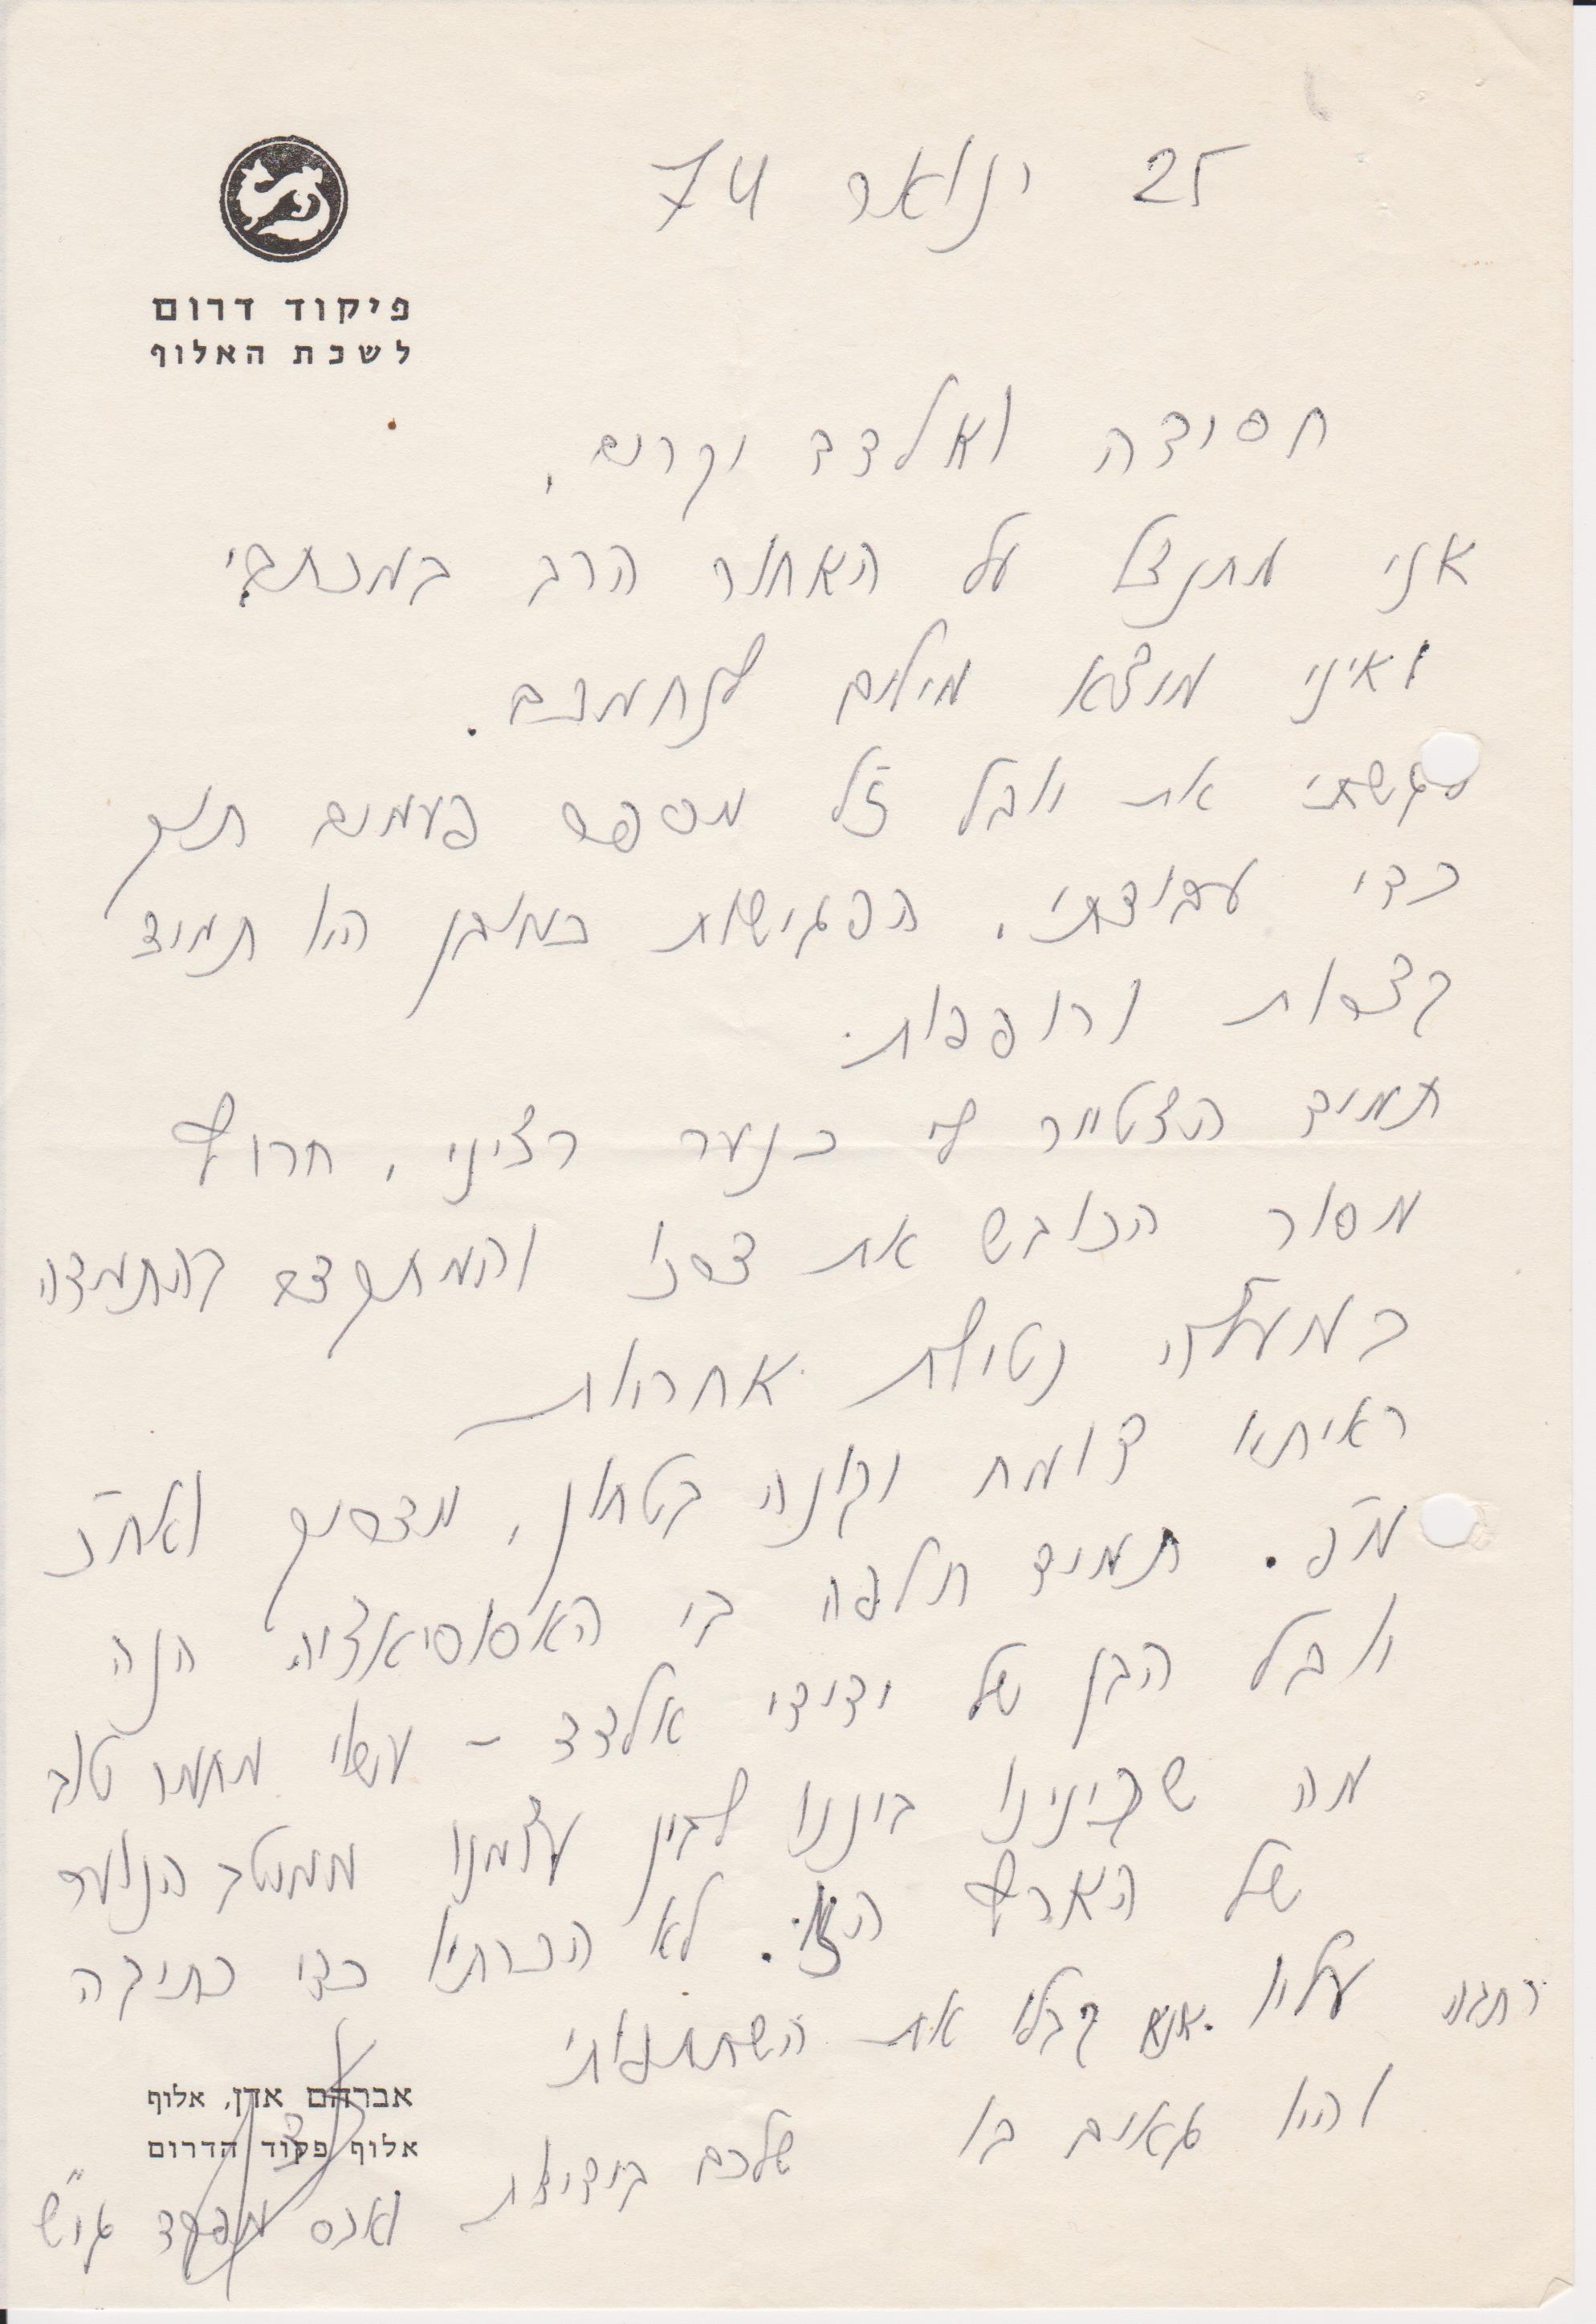 25 ינואר 74
פיקוד דרום
לשכת האלוף
חסידה ואלדד וקרום,
אני מתנצל על האחור הרב במכתבי
ואיני מוצא מילים לנחמכם.
פגשתי את יובל ז"ל מספר פעמים תוך
כדי עבודתי. הפגישות כמובן היו תמיד
קצרות ורופפות.
תמיד הצטייר לי כנער רציני, חרוץ
מסור הכובש את דרכו והמתקדם בהתמדה
במעלה נטילת אחריות
ראיתיו צומח וקונה בטחון, מדריך ואח"כ
מ"פ. תמיד חלפה בי האסוסיאציה הנה
יובל הבן של ידידי אלדד - עשוי מחומר טוב
מה שבינינו ביננו לבין עצמנו ממיטב הנוער
של הארץ הזו. לא הכרתיו כדי כתיבה
רחבה עליו. אנא קבלו את השתתפותי
והיו גאים בו
שלכם בידידות
אברהם אדן, אלוף
אלוף פקוד הדרום
מפקד גי"ש